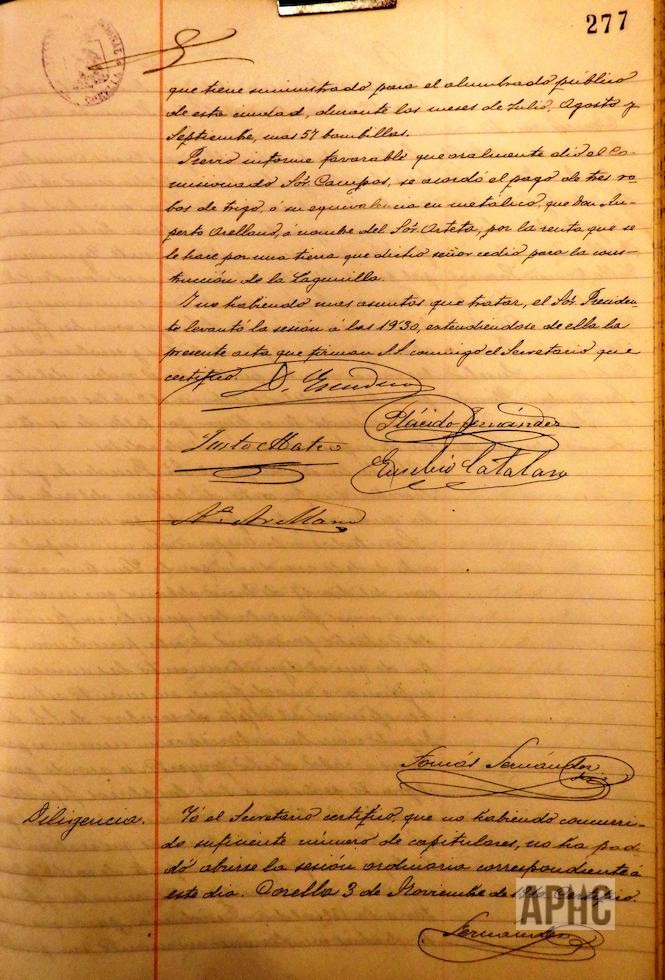 277
que tiene suministrado para el alumbrado público
de esta ciudad, durante los meses de Julio, Agosto y
Septiembre, mas 57 bombillas.
Previo informe favorable que oralmente dió el Co-
misionado Sór. Campos, se acordó el pago de tres ro-
bos de trigo, ó su equivalencia en metálico, que Don
perto Arellano, á nombre del Sór. Arteta, por la renta que se
le hace por una tierra que dicho señor cedió para la cons-
trucción de la Lagunilla.
Y no habiendo mas asuntos que tratar, el Sór. Presiden-
te levantó la sesión á las 19'30, extendiendose de ella la
presente acta que firman SS conmigo el Secretario que
certifico.
D. Escudero
Plácido Fernández
Justo Mateo
Eusebio Catalan
Tomás Fernández
Diligencia.
Yó el Secretario certifico, que no habiendo concurri-
do suficiente número de capitulares, no ha podi
dó abrirse la sesión ordinaria correspondiente á
este dia. Corella 3 de Noviembre de
Fernández
APHC